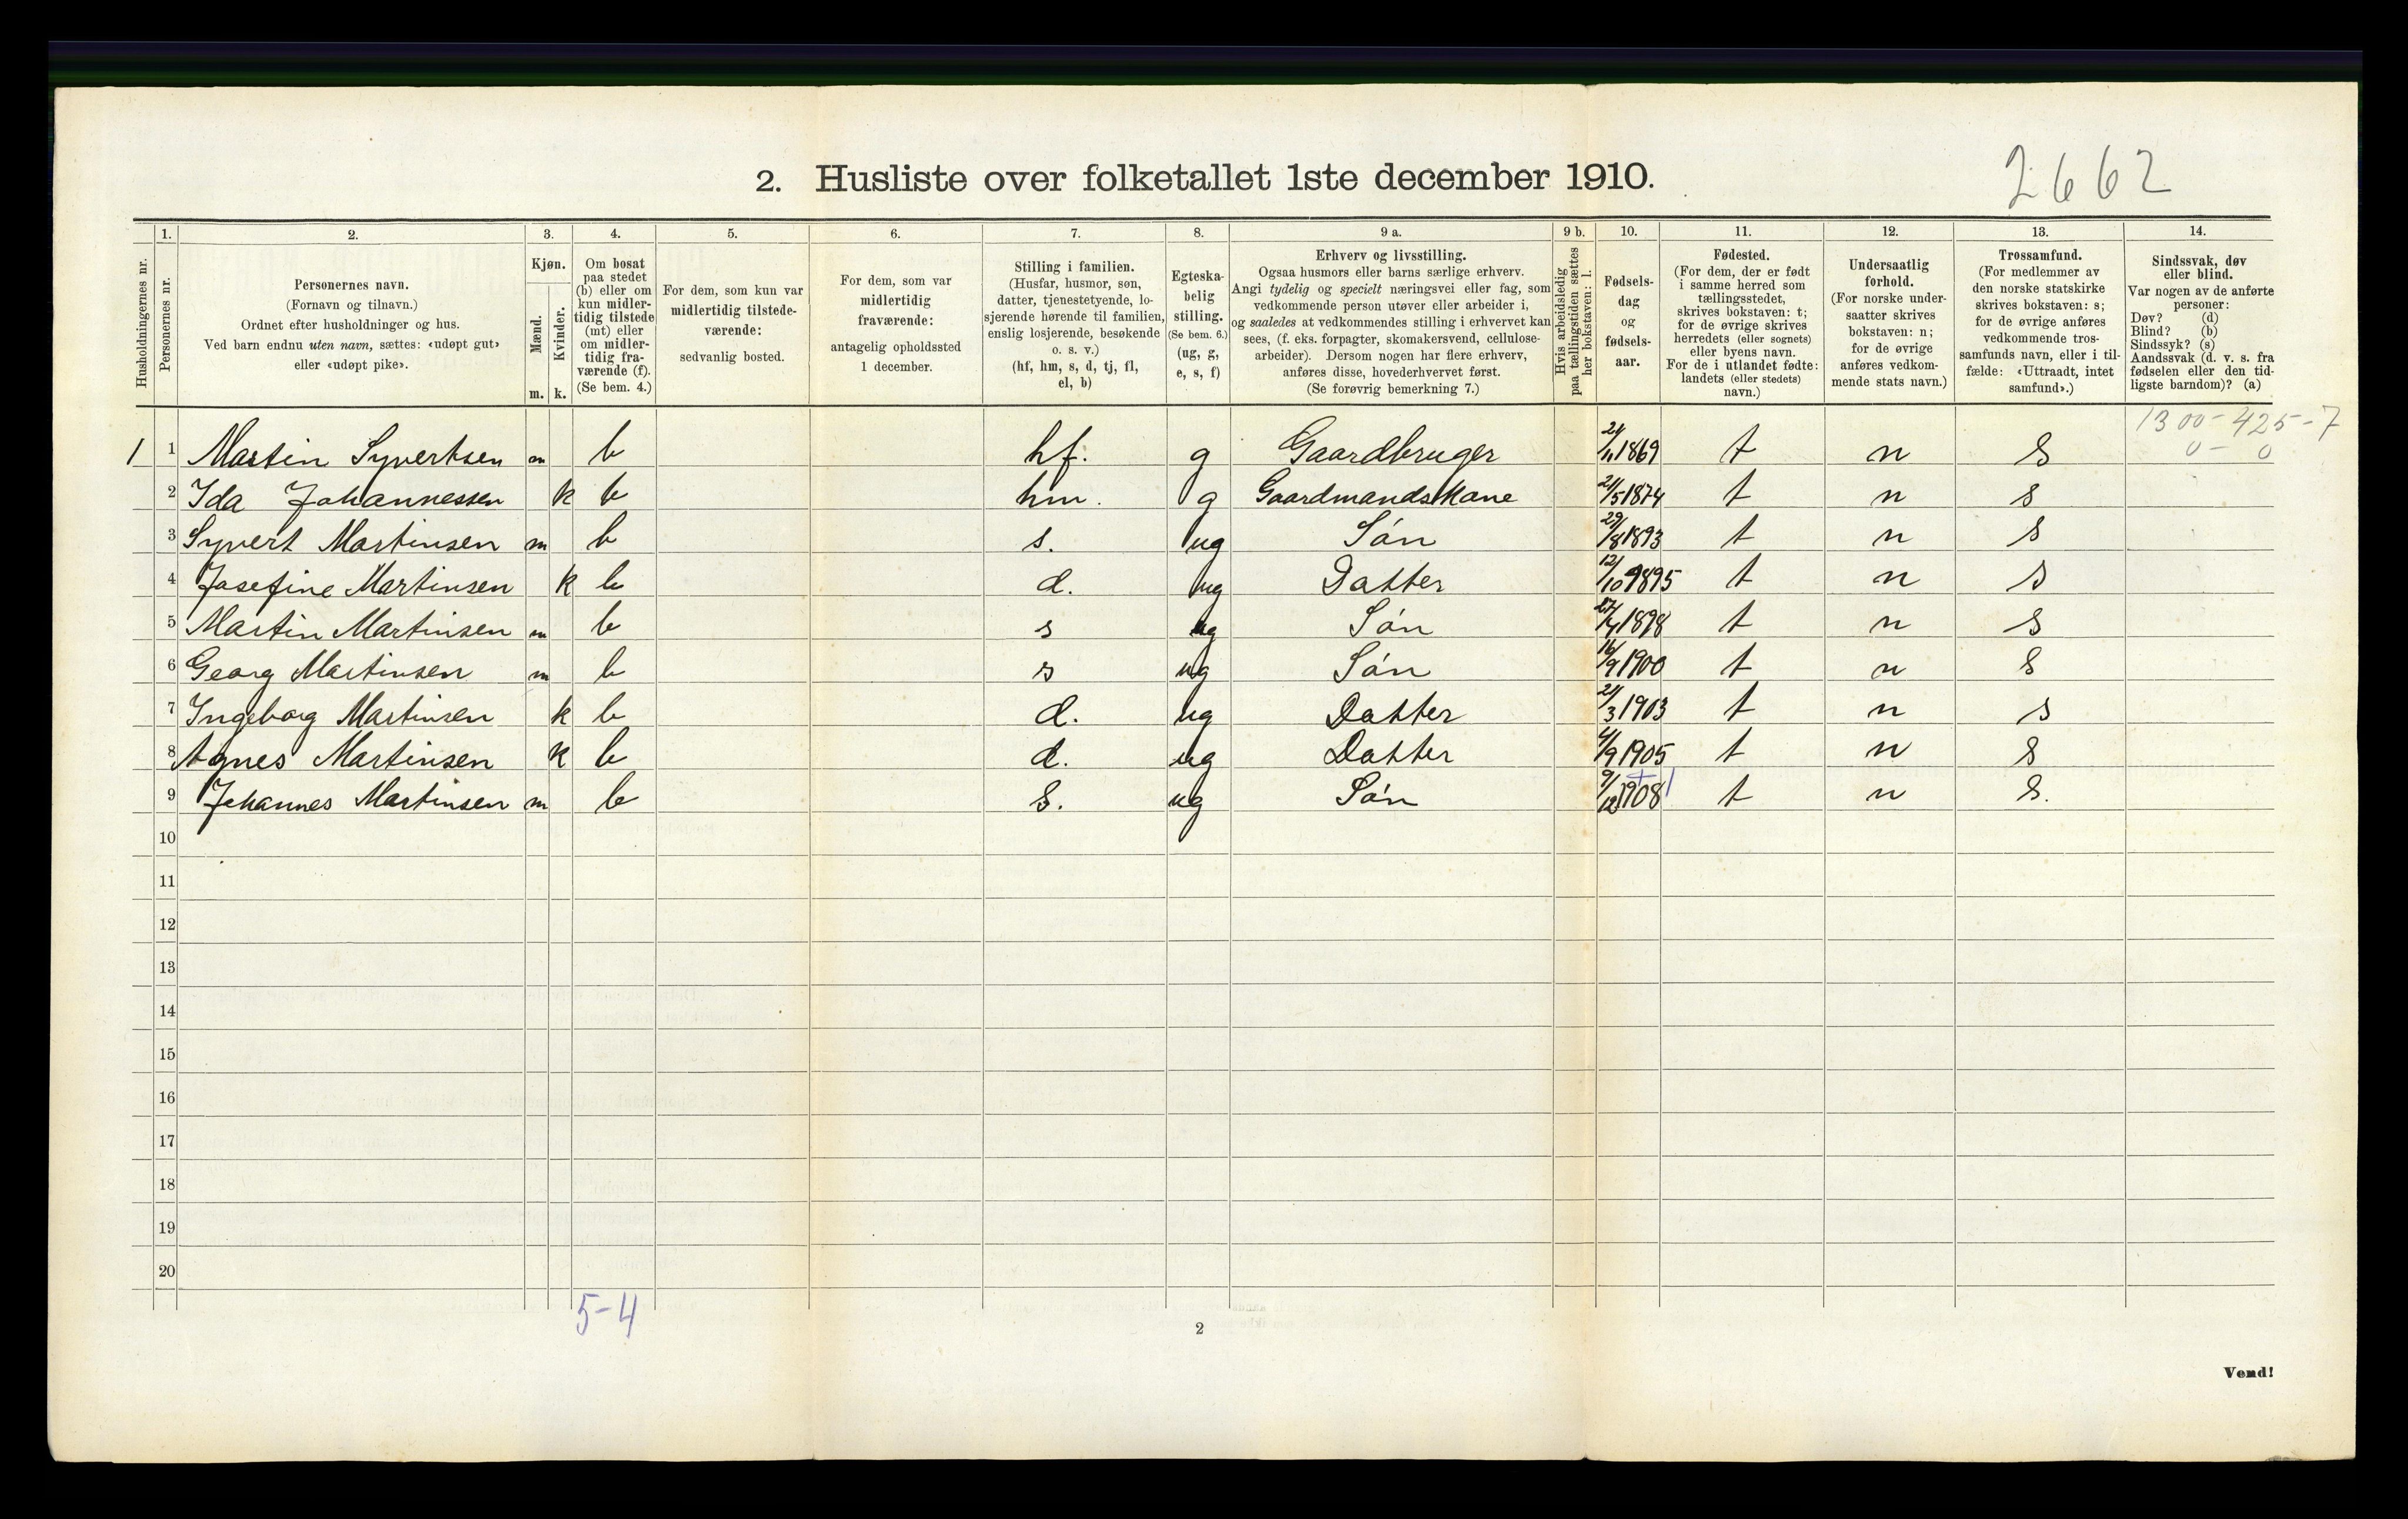 2. Husliste over folketallet 1ste december 1910.
2662
1. 2. 3. 4. 5. 6. 7. 8. 9 a. 9 b. 10. 11. 12. 13. 14.
Husholdningernes nr.
Personernes nr.
Personernes navn.
(Fornavn og tilnavn.)
Ordnet efter husholdninger og hus.
Ved barn endnu uten navn, sættes: «udøpt gut»
eller «udøpt pike».
Kjøn.
Mænd.
Kvinder.
m. k.
Om bosat
paa stedet
(b) eller om
kun midler-
tidig tilstede
(mt) eller
om midler-
tidig fra-
værende (f).
(Se bem. 4.)
For dem, som kun var
midlertidig tilstede-
værende:
sedvanlig bosted.
For dem, som var
midlertidig
fraværende:
antagelig opholdssted
1 december.
Stilling i familien.
(Husfar, husmor, søn,
datter, tjenestetyende, lo-
sjerende hørende til familien,
enslig losjerende, besøkende
o. s. v.)
(hf, hm, s, d, tj, fl,
el, b)
Egteska-
belig
stilling.
(Se bem. 6.)
(ug, g,
e, s, f)
Erhverv og livsstilling.
Ogsaa husmors eller barns særlige erhverv.
Angi tydelig og specielt næringsvei eller fag, som
vedkommende person utøver eller arbeider i,
og saaledes at vedkommendes stilling i erhvervet kan
sees, (f. eks. forpagter, skomakersvend, cellulose-
arbeider). Dersom nogen har flere erhverv,
anføres disse, hovederhvervet først.
(Se forøvrig bemerkning 7.)
Hvis arbeidsledig
paa tællingstiden sættes
her bokstaven: l.
Fødsels-
dag
og
fødsels-
aar.
Fødested.
(For dem, der er født
i samme herred som
tællingsstedet,
skrives bokstaven: t;
for de øvrige skrives
herredets (eller sognets)
eller byens navn.
For de i utlandet fødte:
landets (eller stedets)
navn.)
Undersaatlig
forhold.
(For norske under-
saatter skrives
bokstaven: n;
for de øvrige
anføres vedkom-
mende stats navn.)
Trossamfund.
(For medlemmer av
den norske statskirke
skrives bokstaven: s;
for de øvrige anføres
vedkommende tros-
samfunds navn, eller i til-
fælde: «Uttraadt, intet
samfund».)
Sindssvak, døv
eller blind.
Var nogen av de anførte
personer:
Døv? (d)
Blind? (b)
Sindssyk? (s)
Aandssvak (d. v. s. fra
fødselen eller den tid-
ligste barndom)? (a)
1300 - 425 - 7
0 - 0
1 1 Martin Syvertsen m b hf. g Gaardbruger 1869 t n s
2 Ida Johannessen k b hm. g GaardmandsKone 21/5 1874 t n s
3 Syvert Martinsen m b s. ug Són 29/8 1893 t n s
4 Josefine Martinsen k b d. ug Datter 12/10 1895 t n s
5 Martin Martinsen m b s ug Són 1898 t n s
6 Georg Martinsen m b s ug Són 16/9 1900 t n s
7 Ingeborg Martinsen k b d. ug Datter 21/3 1903 t n s
8 Agnes Martinsen k b d. ug Datter 4/9 1905 t n s
9 Johannes Martinsen m b s. ug Són 9/12 1908 t n s.
10
11
12
13
14
15
16
17
18
19
20
5-4
2
Vend!